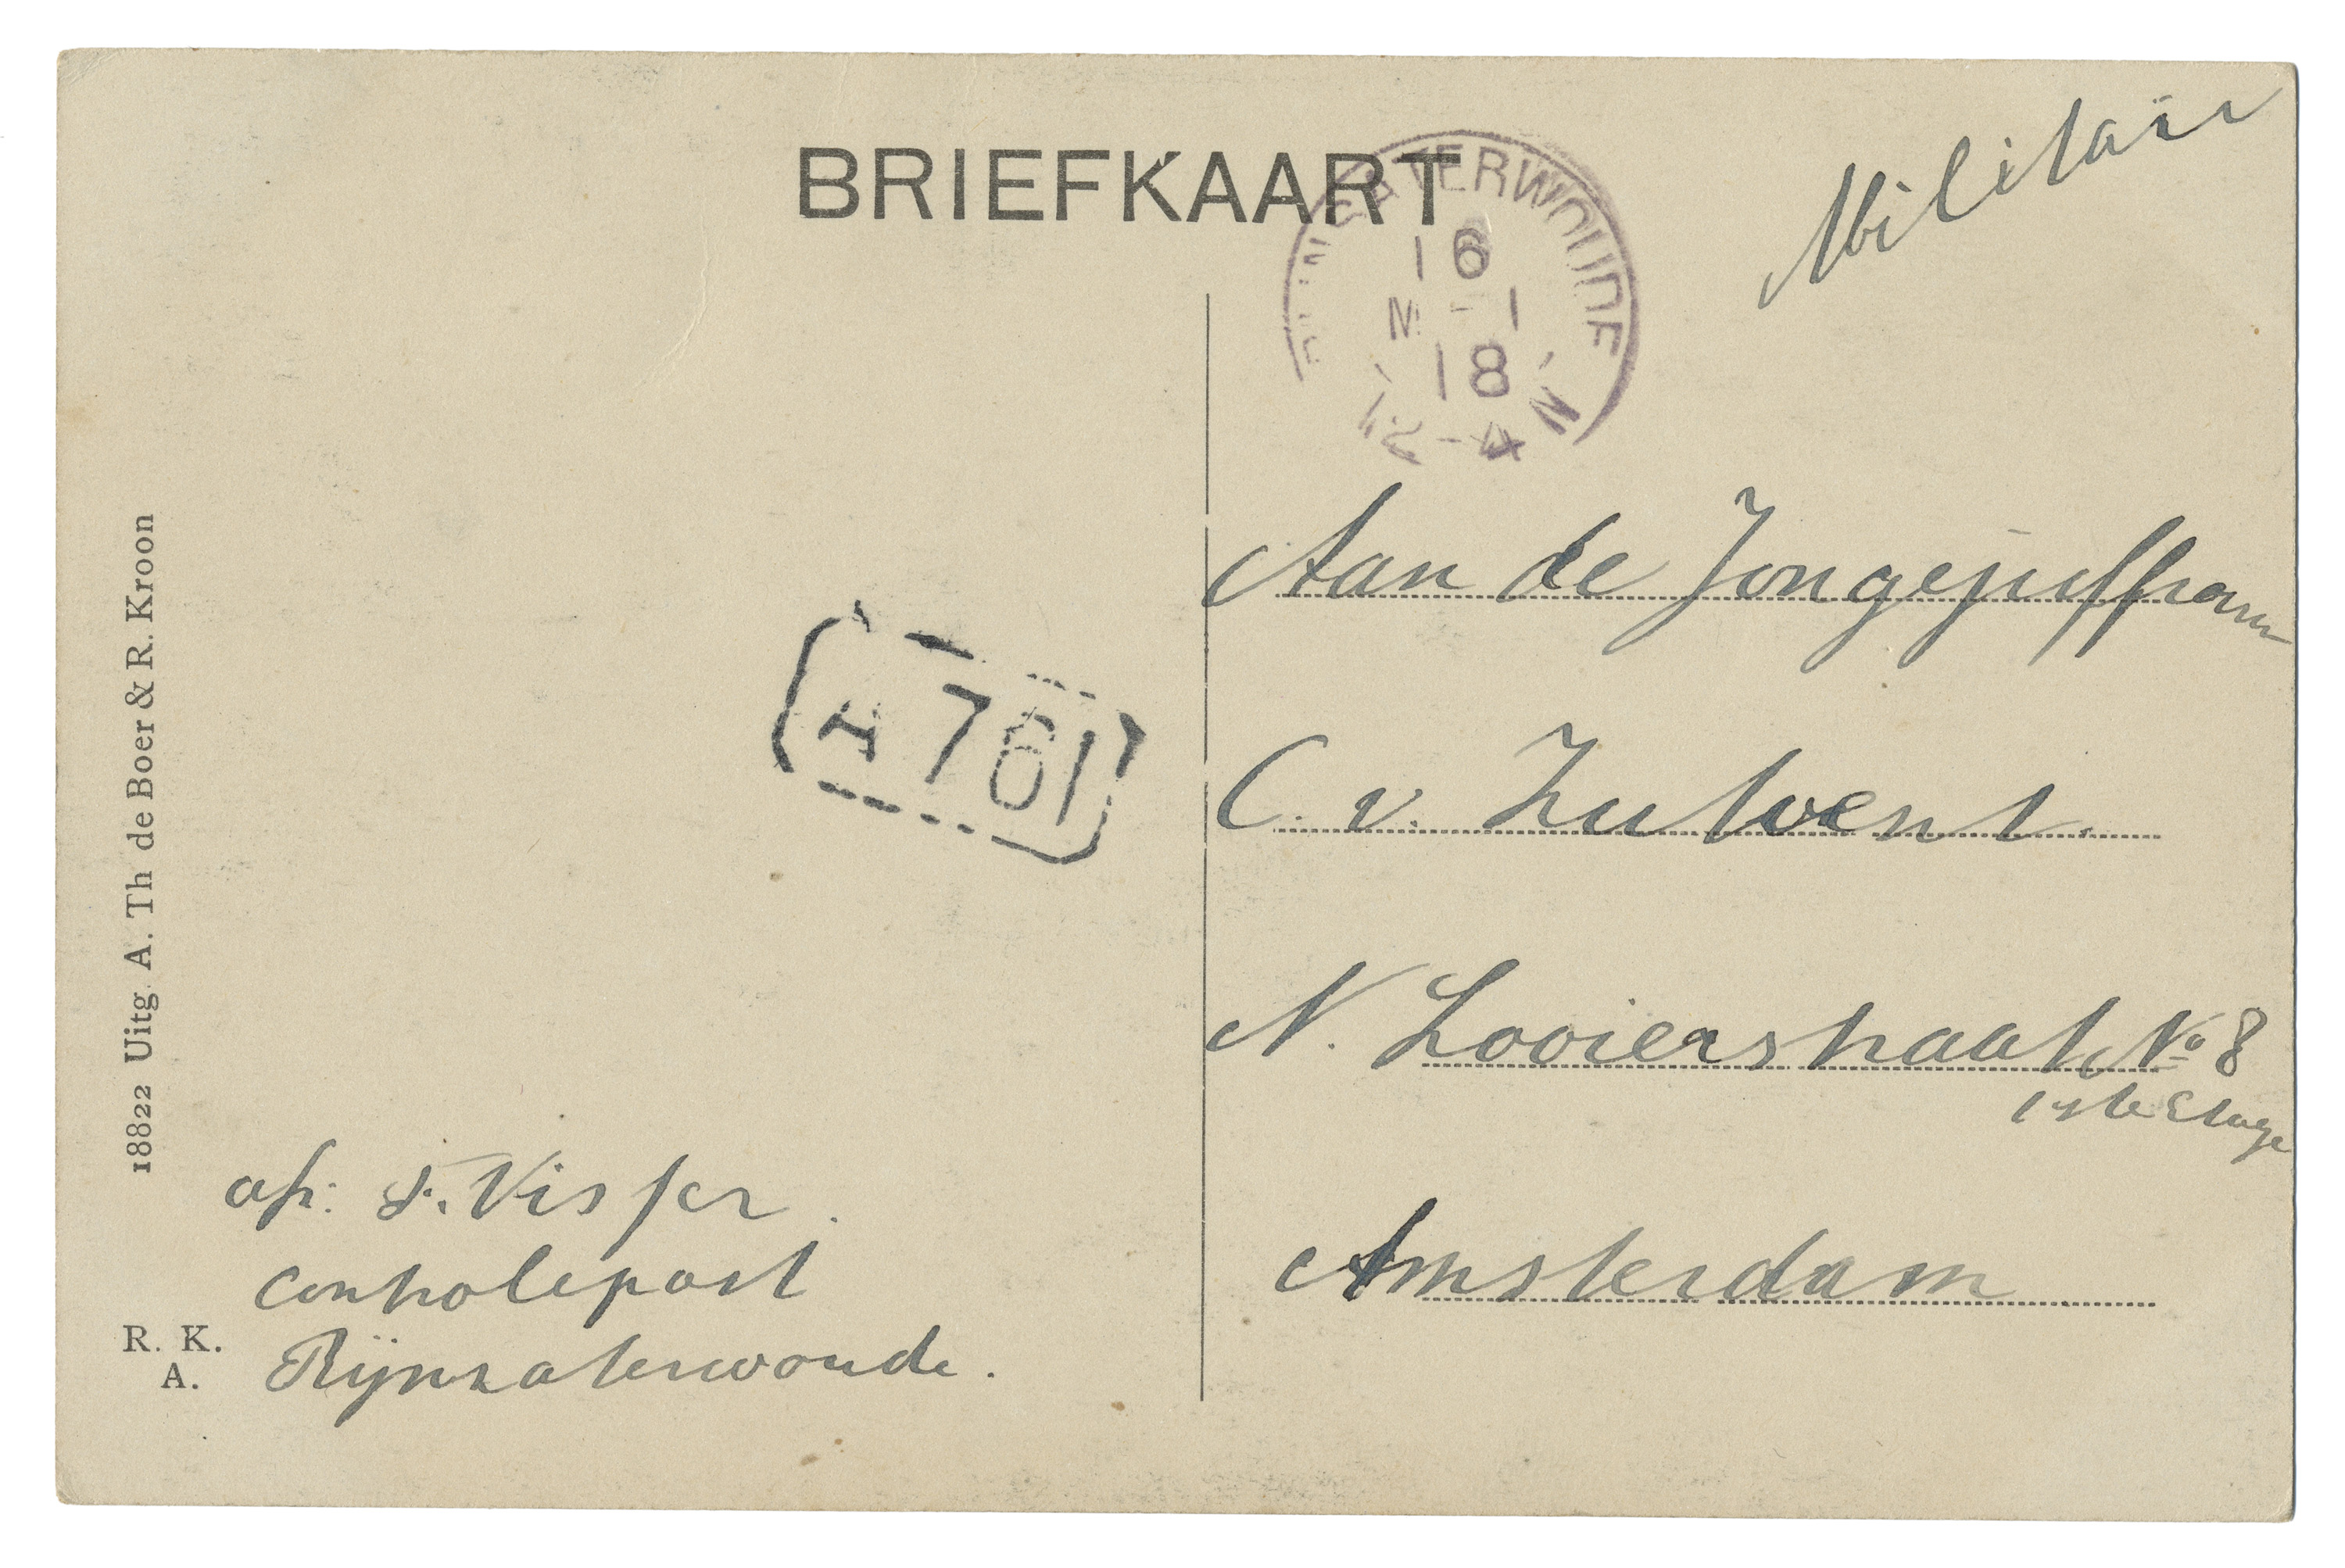 BRIEFKAART
Militair
RIJNSATERWOUDE
16
1
18
12-4 N
Aan de Jongejuffrouw
C. v. Zutvent.
N. Looierstraat No 8
1ste Etage
Amsterdam
A 761
18822 Uitg. A. Th de Boer & R. Kroon
afz: F. Visser.
Controlepost
Rijnsaterwoude.
R. K.
A.